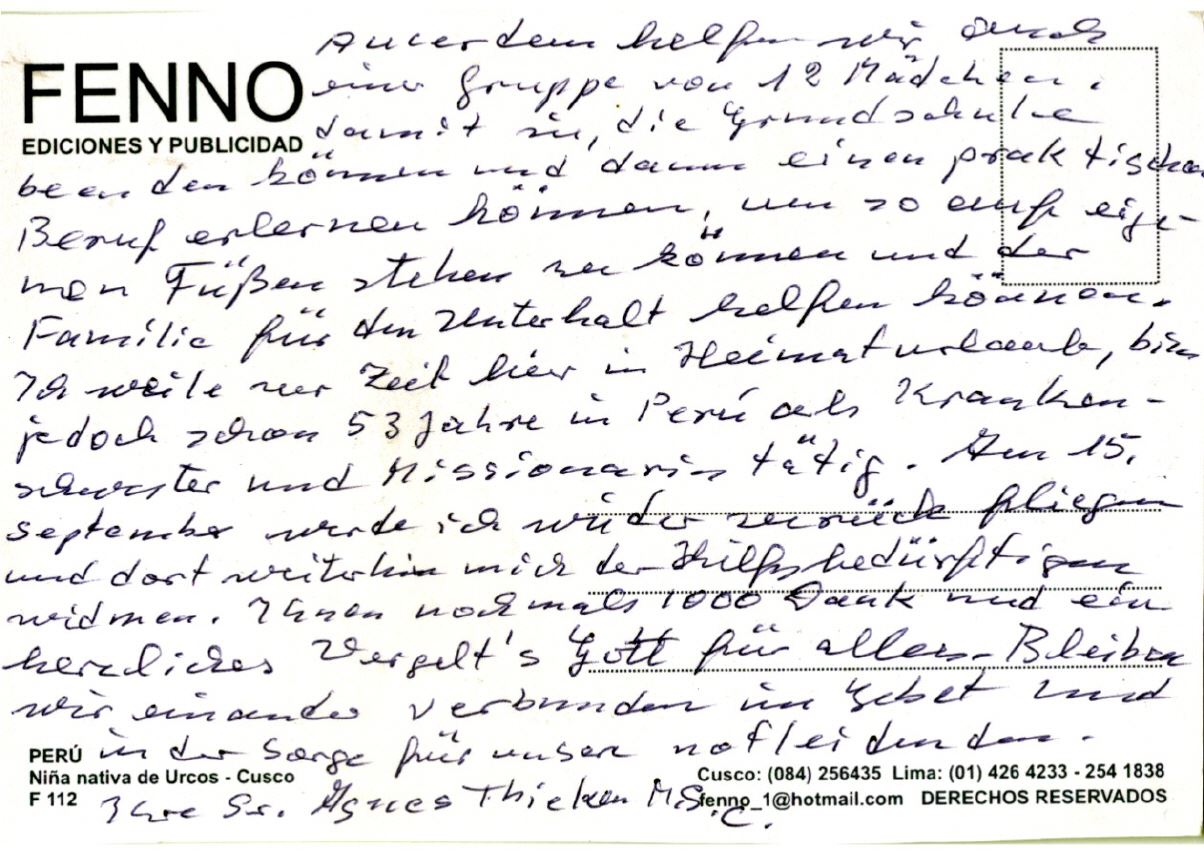 FENNO
EDICIONES Y PUBLICIDAD
Auserdem helfen wir auch
einer Gruppe von 12 Mädchen,
damit sie, die Grundschule
beenden können und dann einen praktischen
Beruf erlernen können, um so auf eige-
nen Füßen stehen zu können und der
Familie für den Unterhalt helfen können.
Ich weile zur Zeit hier in Heimaturlaub, bin
jedoch schon 53 Jahre in Perú als Kranken-
schwester und Missionarin tätig. Am 15.
September werde ich wieder zurück fliegen
und dort weiterhin mich der Hilfsbedürftigen
widmen. Ihnen nochmals 1000 Dank und ein
herzliches Vergelt's Gott für alles. Bleiben
wir einander verbunden im Gebet und
in der Sorge für unsere notleidenden.
Ihre Sr. Agnes Thieken M.S.C.
PERÚ
Niña nativa de Urcos - Cusco
F 112
Cusco: (084) 256435 Lima: (01) 426 4233 - 254 1838
fenno_1@hotmail.com DERECHOS RESERVADOS